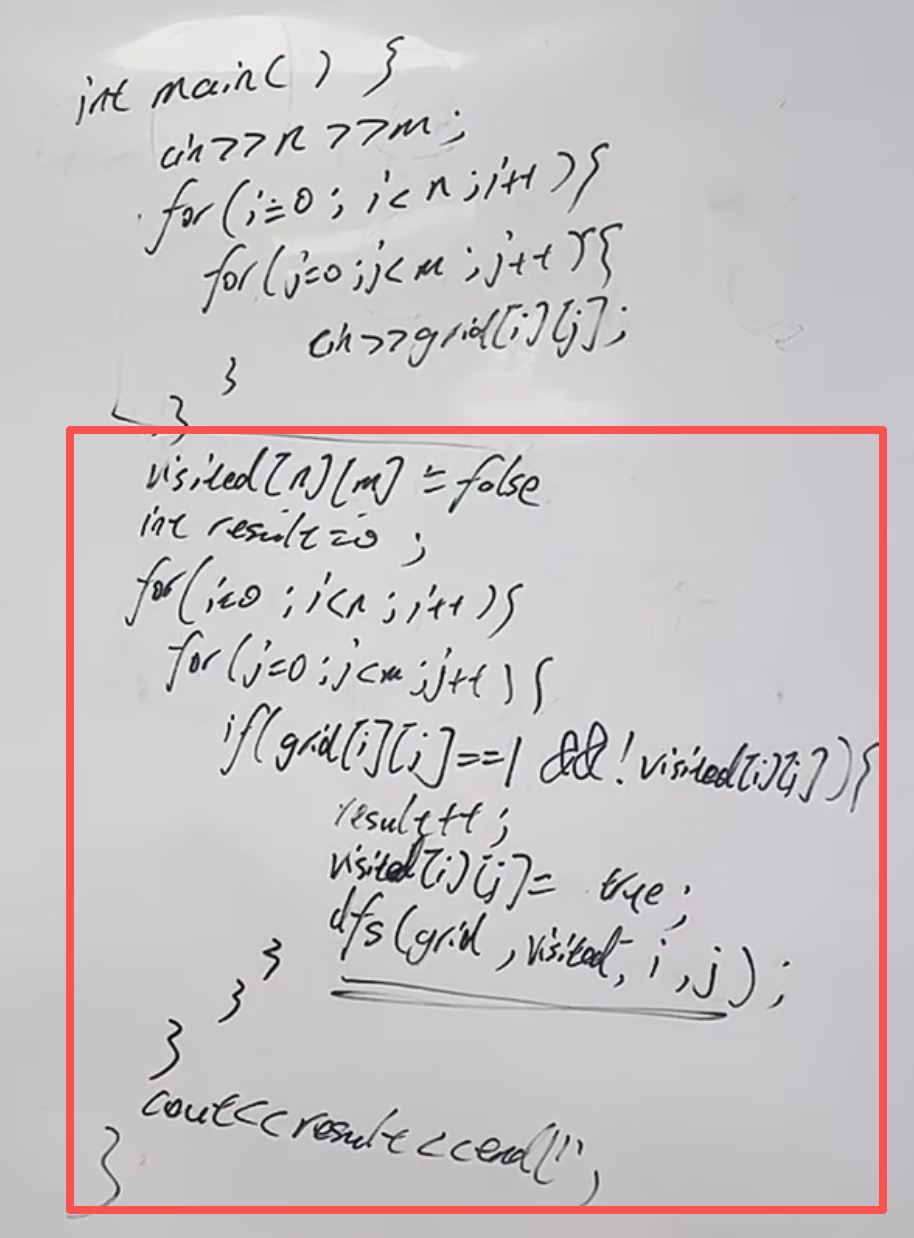 int main() {
cin>>n>>m;
for(i=0; i<n;i++){
for(j=0;j<m;j++){
cin>>grid[i][j];
}
}
visited[n][m]=false
int result=0;
for(i=0;i<n;i++){
for(j=0;j<m;j++){
if(grid[i][j]==1 &&!visited[i][j]){
result++;
visited[i][j]= true;
dfs(grid,visited,i,j);
}
}
}
cout<<result<<endl;
}